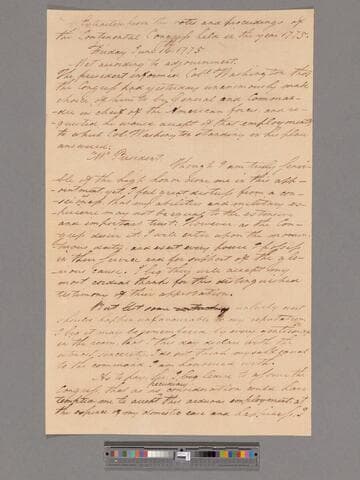 Extracts from the votes and proceedings of
the Continental Congress held in the year 1775.
Friday June 16 1775
Met according to adjournment.
The president informed Colo. Washington that
the Congress had yesterday unanimously made
choice of him to be General and Comman-
der in chief of the American forces and re-
quested he would accept of that employment
to which Col. Washington standing in his place
answered.
Mr. President.
Though I am truly sensi-
ble of the high honor done me in this app-
ointment yet, I feel great distress from a con-
sciousness that my abilities and military ex-
perience may not be equal to the extensive
and important trust. However as the Con-
gress desire it I will enter upon the momen-
tuous duty, and exert every power I possess
in their service and for support of the glo-
rious cause. I beg they will accept my
most cordial thanks for this distinguished
testimony of their approbation.
But lest some unlucky event
should happen unfavourable to my reputation
I beg it may be remembered by every gentleman
in the room that I this day declare with the
utmost sincerity I do not think myself equal
to the command I am honoured with.
As to pay Sir, I beg leave to assure the
Congress that as no pecuniary consideration could have
temptation me to accept this arduous employment at
the expence of my domestic ease and happiness I